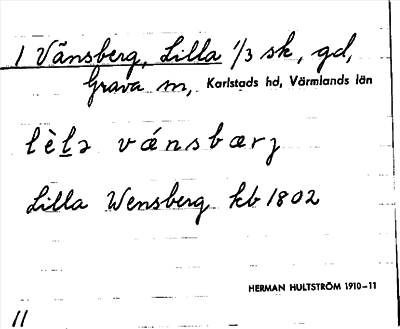 1 Vänsberg, Lilla 1/3 sk, gd,
Grava sn, Karlstads hd, Värmlands län
lèlə vǽnsbærj
Lilla Wensberg kb 1802
HERMAN HULTSTRÖM 1910-11
11